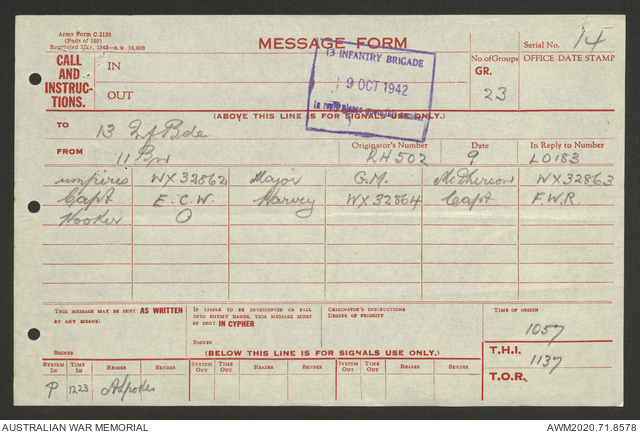 Army Form C.2136
(Pads of 100)
Reprinted May, 1942
MESSAGE FORM
Serial No. 14
CALL AND INSTRUC-TIONS.
IN
OUT
13 INFANTRY BRIGADE
9 OCT 1942
No. of Groups
GR.
23
OFFICE DATE STAMP
(ABOVE THIS LINE IS FOR SIGNALS USE ONLY.)
TO 13 Inf Bde
FROM 11 Bn
Originator's Number RH502
Date 9
In Reply to Number LO183
umpires WX32862 Major G.M. McPherson WX32863
Capt E.C.W. Harvey WX32864 Capt F.W.R.
Hooker O
THIS MESSAGE MAY BE SENT AS WRITTEN BY ANY MEANS.
SIGNED
IF LIABLE TO BE INTERCEPTED OR FALL INTO ENEMY HANDS, THIS MESSAGE MUST BE SENT IN CYPHER
SIGNED
ORIGINATOR'S INSTRUCTIONS
DEGREE OF PRIORITY
TIME OF ORIGIN
1057
(BELOW THIS LINE IS FOR SIGNALS USE ONLY.)
T.H.I. 1137
T.O.R.
SYSTEM IN TIME IN READER SENDER SYSTEM OUT TIME OUT READER SENDER SYSTEM OUT TIME OUT READER SENDER
P 1223
AUSTRALIAN WAR MEMORIAL
AWM2020.71.8578